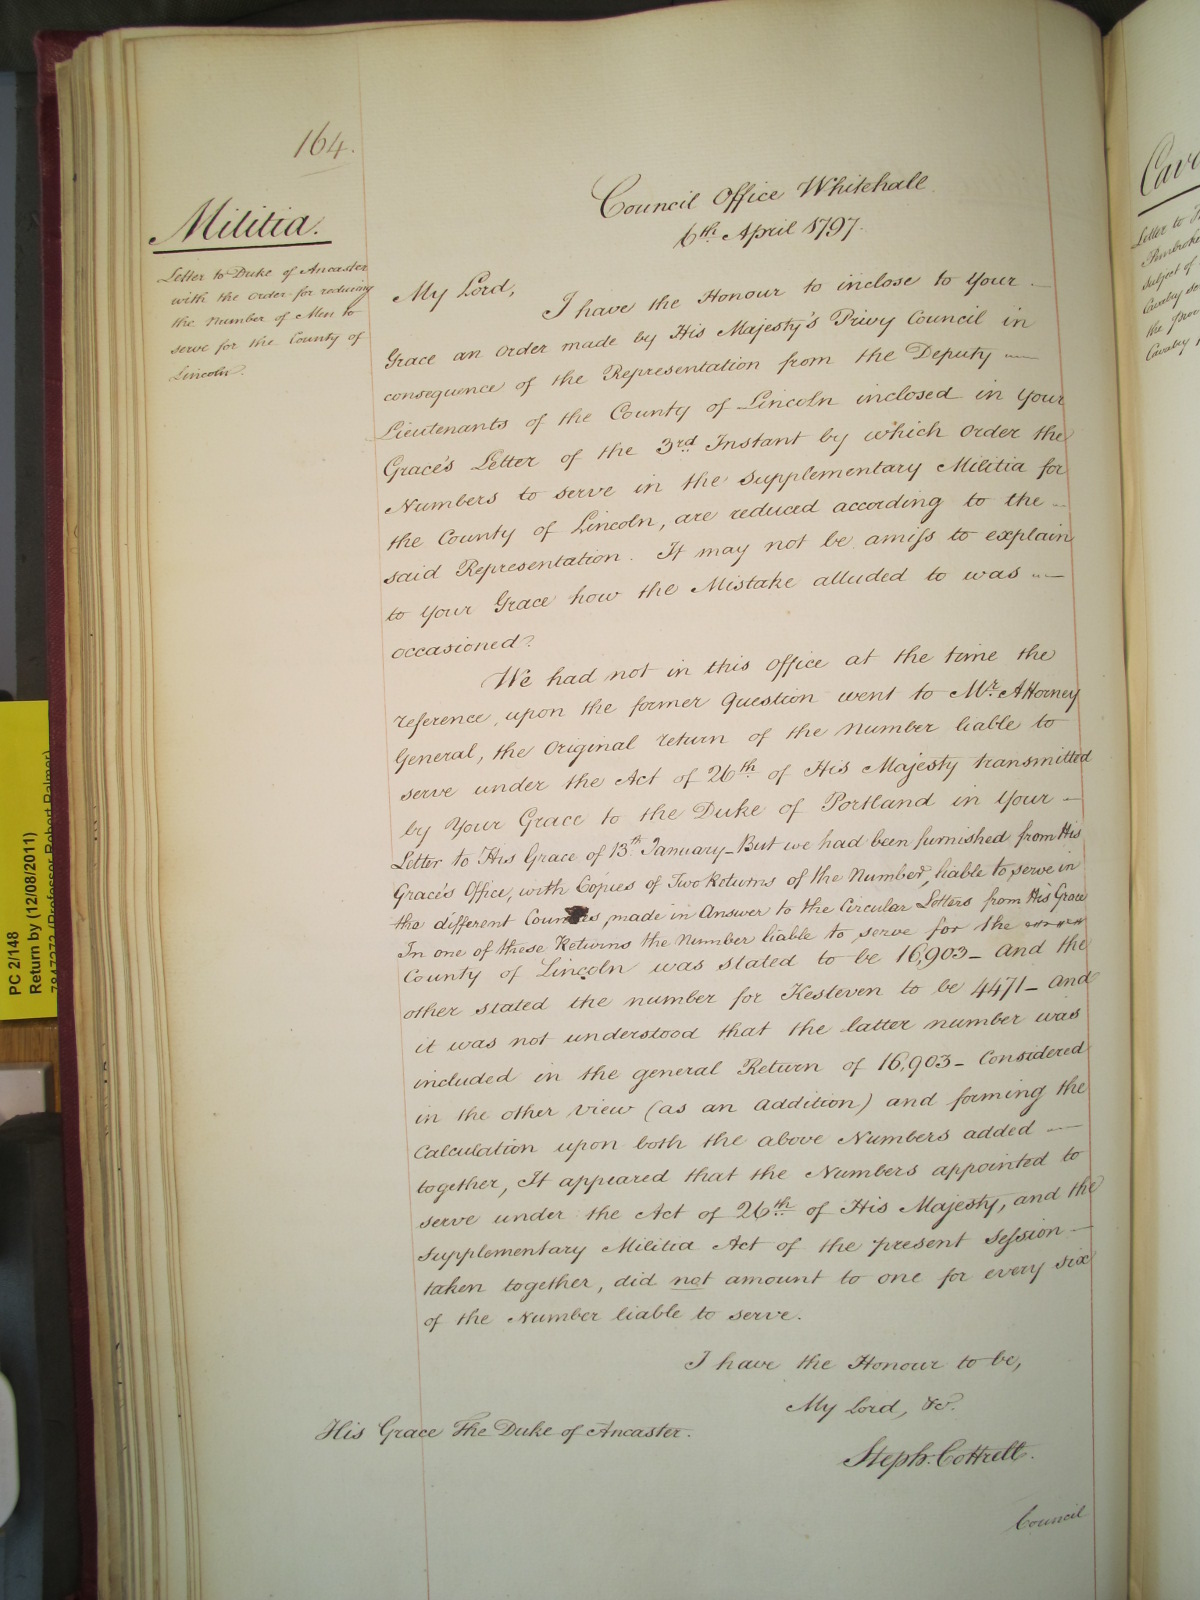 164.
Militia.
Letter to Duke of Ancaster
with the order for reducing
the Number of Men to
serve for the County of
Lincoln.
Council Office Whitehall
6th April 1797.
My Lord,
I have the Honour to inclose to Your
Grace an Order made by His Majesty's Privy Council in
consequence of the Representation from the Deputy
Lieutenants of the County of Lincoln inclosed in Your
Grace's Letter of the 3rd Instant by which Order the
Numbers to serve in the Supplementary Militia for
the County of Lincoln, are reduced according to the
said Representation. It may not be amiss to explain
to Your Grace how the Mistake alluded to was
occasioned.
We had not in this Office at the time the
reference, upon the former Question went to Mr. Attorney
General, the Original return of the Number liable to
serve under the Act of 26th of His Majesty transmitted
by Your Grace to the Duke of Portland in Your
Letter to His Grace of 13th January_But we had been furnished from His
Grace's Office, with Copies of Two Returns of the Number, liable to serve in
the different Counties, made in Answer to the Circular Letters from His Grace
In one of these Returns the Number liable to serve for the
County of Lincoln was stated to be 16,903_ and the
other stated the number for Kesteven to be 4471_ and
it was not understood that the latter number was
included in the general Return of 16,903_ Considered
in the other view (as an addition) and forming the
Calculation upon both the above Numbers added
together, It appeared that the Numbers appointed to
serve under the Act of 26th of His Majesty, and the
Supplementary Militia Act of the present Session
taken together, did not amount to one for every six
of the Number liable to serve.
I have the Honour to be,
My Lord, &c.
His Grace The Duke of Ancaster.
Steph. Cottrell.
Council
Cava
Letter to
Pembroke
subject of
Cavalry
the
Cavalry
PC 2/148
Return by (12/08/2011)
(Professor Robert Palmer)